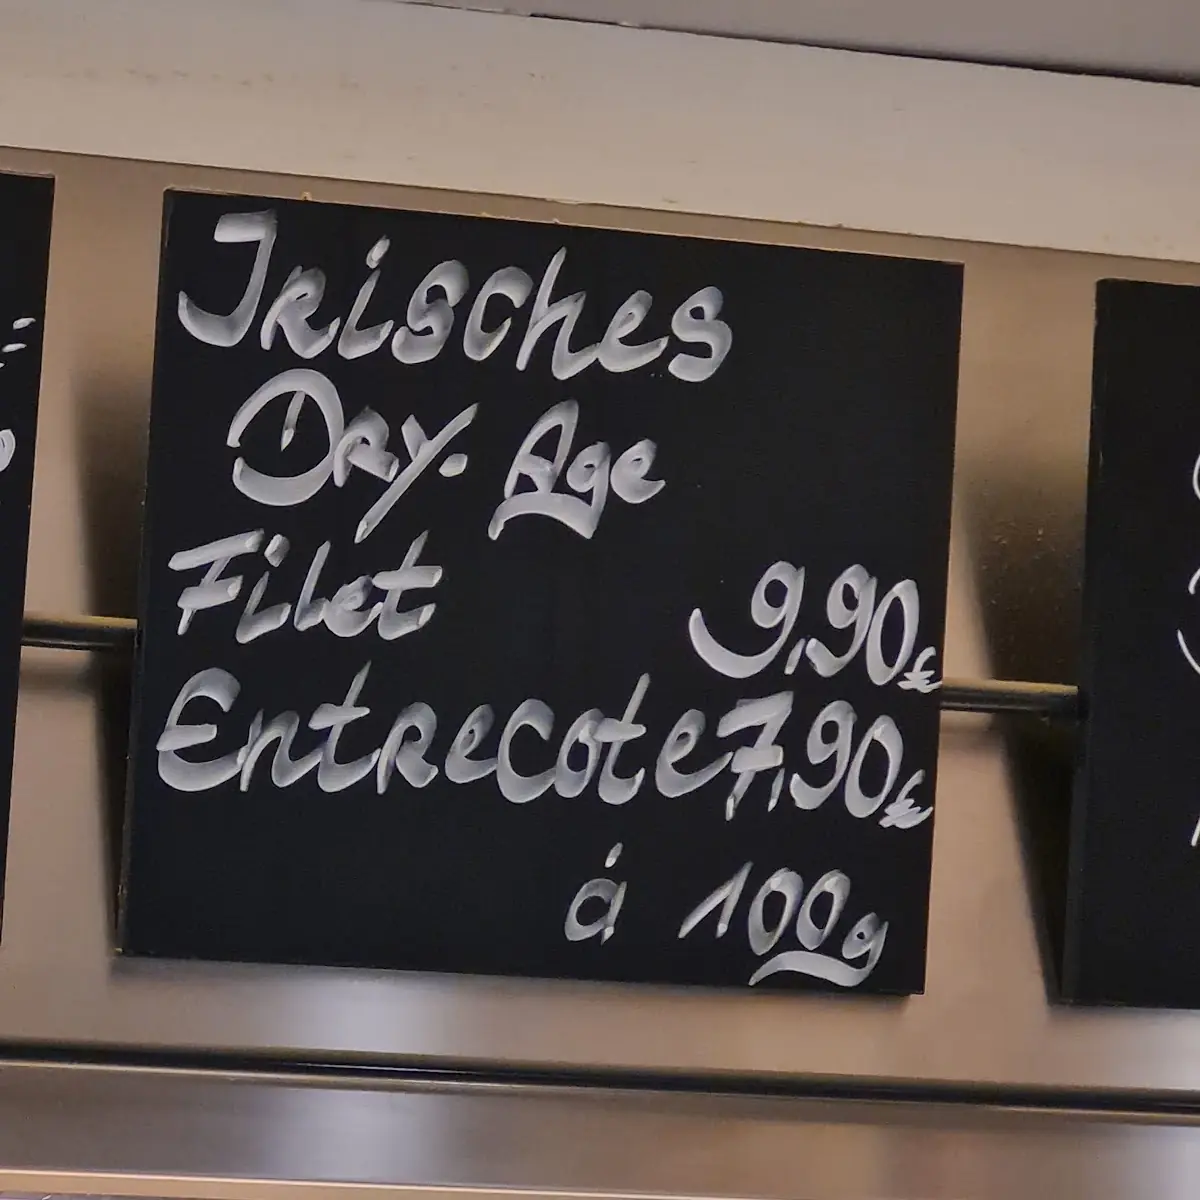 Irisches
Dry. Age
Filet 9,90€
Entrecote 7,90€
á 100g